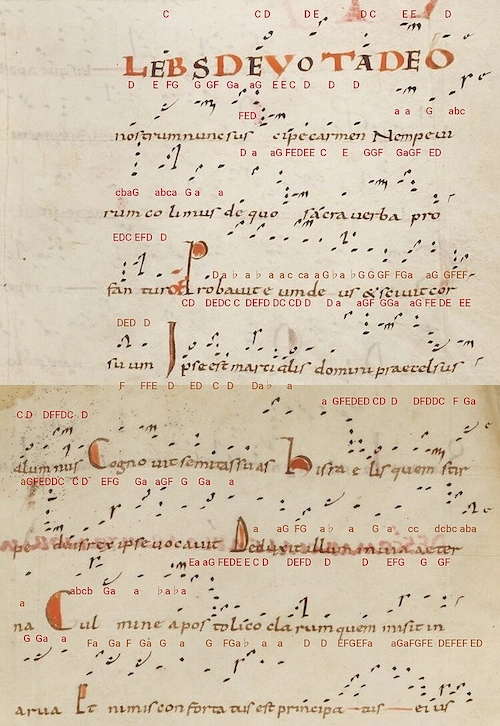 C CD DE DC EE D
LEBS DEVOTA DEO
D E FG G GF Ga aG EEC D D D FED a a G abc
nostrum nunc suscipe carmen Nempe ui
cbaG abca Ga a D a aG FEDEE C E GGF GaGF ED
rum colimus de quo sacra uerba pro
EDC EFD D Da ♭ a ♭ a ac ca aG ♭a ♭G GGF FGa aG GFEF
fantur Probauit eum deus & sciuit cor
DED D CD DEDC C DEFD DC CD D Da aGF GGa aG FE DE EE
suum Ipse est martialis domini praecelsus
CD DFFDC D F FFE D ED C D Da♭ a a GFEDED CD D DFDDC F Ga
alumnus Cognouit semitas suas Hisra e lis quem stir
aGFEDDC CD EFG Ga aGF G Ga a a aG FG a♭ a G a cc dcbc aba
pe deus rex ipse uocauit Deduxit illum in uia aeter
a abcb Ga a ♭a♭a Ea aG FEDE E C D DEFD D D EFG G GF
na Cul mine apostolico clarum quem misit in
G Ga a Fa Ga F Ga G a G FGa♭ a a D D EFGEFa aGaFGFE DEFEF ED
arua Et nimis confortatus est principatus eius